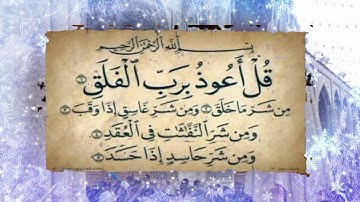 بِسْمِ ٱللَّهِ ٱلرَّحْمَٰنِ ٱلرَّحِيمِ
قُلْ أَعُوذُ بِرَبِّ ٱلْفَلَقِ ۝١
مِن شَرِّ مَا خَلَقَ ۝٢ وَمِن شَرِّ غَاسِقٍ إِذَا وَقَبَ ۝٣
وَمِن شَرِّ ٱلنَّفَّٰثَٰتِ فِى ٱلْعُقَدِ ۝٤
وَمِن شَرِّ حَاسِدٍ إِذَا حَسَدَ ۝٥